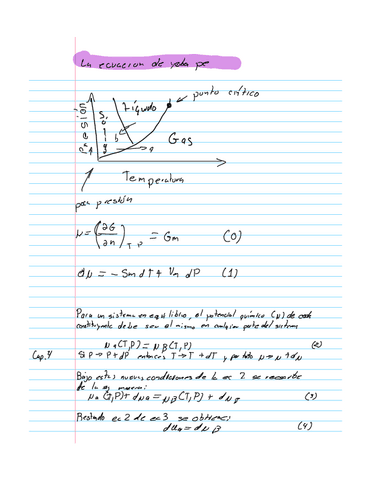 La ecuacion de
punto crítico
Líquido
Sólido
Presión
b
Gas
a
Temperatura
presión
μ = (∂G/∂n)T P = Gm (0)
dμ = - Sm dT + Vm dP (1)
Para un sistema en equilibrio, el potencial químico (μ) de cada
constituyente debe ser el mismo en cualquier parte del sistema
μα(T,P) = μβ(T,P) (2)
Cap. 4
Si P → P + dP entonces T → T + dT y por tanto μ → μ + dμ
Bajo estas nuevas condiciones de la ec 2 se reescribe
de la sig manera:
μα(T,P) + dμα = μβ(T,P) + dμβ (3)
Restando ec 2 de ec 3 se obtiene:
dμα = dμβ (4)